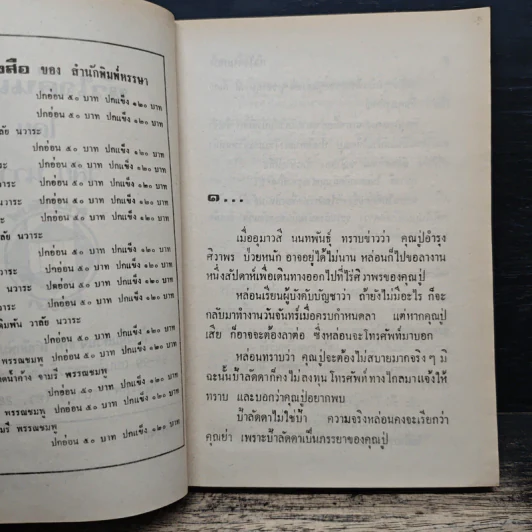 งสือ ของ สำนักพิมพ์หรรษา
ปกอ่อน ๕๐ บาท ปกแข็ง ๑๒๐ บาท
ปกอ่อน ๕๐ บาท ปกแข็ง ๑๒๐ บาท
าลัย นวาระ
ปกอ่อน ๕๐ บาท ปกแข็ง ๑๒๐ บาท
วาระ ปกอ่อน ๕๐ บาท ปกแข็ง ๑๒๐ บาท
วาระ ปกอ่อน ๕๐ บาท ปกแข็ง ๑๒๐ บาท
ระ ปกอ่อน ๕๐ บาท ปกแข็ง ๑๒๐ บาท
าลัย นวาระ
ปกอ่อน ๕๐ บาท ปกแข็ง ๑๒๐ บาท
นวาระ ปกอ่อน ๕๐ บาท ปกแข็ง ๑๒๐ บาท
นวาระ ปกอ่อน ๕๐ บาท ปกแข็ง ๑๒๐ บาท
วาระ ปกอ่อน ๕๐ บาท ปกแข็ง ๑๒๐ บาท
พิมพ์พัน วาลัย นวาระ
ปกอ่อน ๕๐ บาท ปกแข็ง ๑๒๐ บาท
พรรณชมพู ปกอ่อน ๕๐ บาท ปกแข็ง ๑๒๐ บาท
น้ำค้าง จามรี พรรณชมพู
ปกอ่อน ๕๐ บาท ปกแข็ง ๑๒๐ บาท
พรรณชมพู ปกอ่อน ๕๐ บาท ปกแข็ง ๑๒๐ บาท
รี พรรณชมพู
ปกอ่อน ๕๐ บาท ปกแข็ง ๑๒๐ บาท
๑...
เมื่ออุมาวสี นนทพันธุ์ ทราบข่าวว่า คุณปู่อำรุง
ศิวาพร ป่วยหนัก อาจอยู่ได้ไม่นาน หล่อนก็ไปขอลางาน
หนึ่งสัปดาห์เพื่อเดินทางออกไปที่ไร่ศิวาพรของคุณปู่
หล่อนเรียนผู้บังคับบัญชาว่า ถ้ายังไม่มีอะไร ก็จะ
กลับมาทำงานวันจันทร์เมื่อครบกำหนดลา แต่หากคุณปู่
เสีย ก็อาจจะต้องลาต่อ ซึ่งหล่อนจะโทรศัพท์มาบอก
หล่อนทราบว่า คุณปู่จะต้องไม่สบายมากจริง ๆ มิ
ฉะนั้นป้าลัดดาก็คงไม่ลงทุน โทรศัพท์ทางไกลมาแจ้งให้
ทราบ และบอกว่าคุณปู่อยากพบ
ป้าลัดดาไม่ใช่ป้า ความจริงหล่อนคงจะเรียกว่า
คุณย่า เพราะป้าลัดดาเป็นภรรยาของคุณปู่